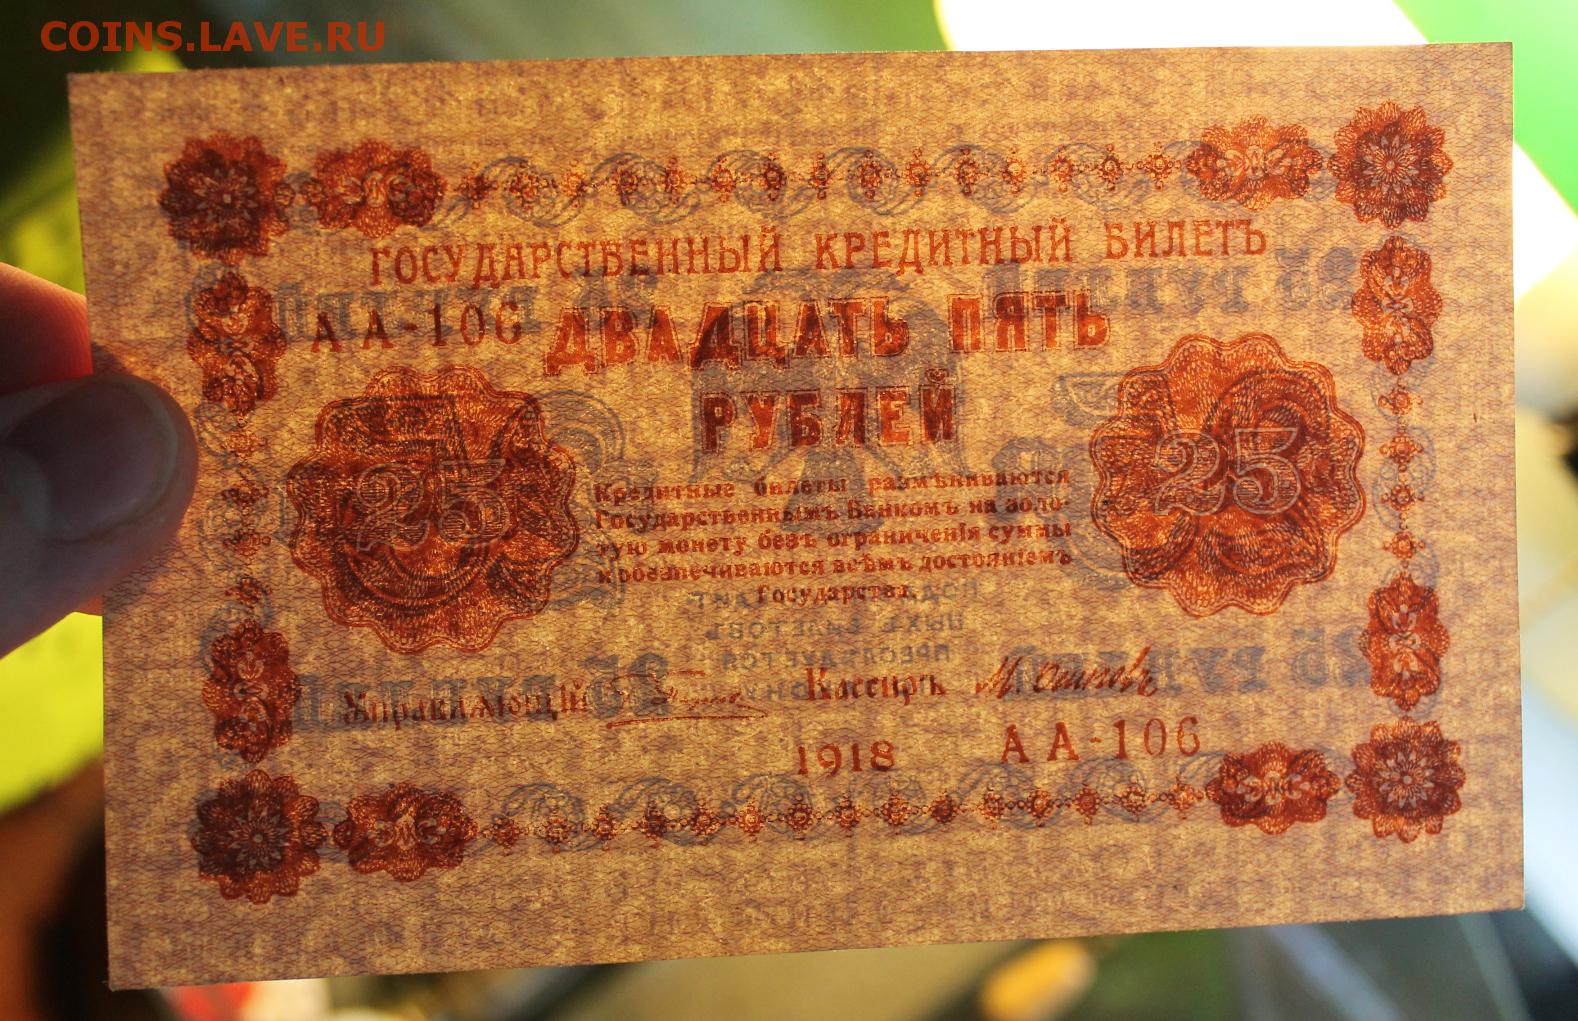 COINS.LAVE.RU
ГОСУДАРСТВЕННЫЙ КРЕДИТНЫЙ БИЛЕТЪ
АА-106 ДВАДЦАТЬ ПЯТЬ
РУБЛЕЙ
25
25
Кредитные билеты размѣниваются
Государственнымъ Банкомъ на золо-
тую монету безъ ограниченія суммы
и обезпечиваются всѣмъ достояніемъ
Государства.
Управляющій
Кассиръ
1918 АА-106